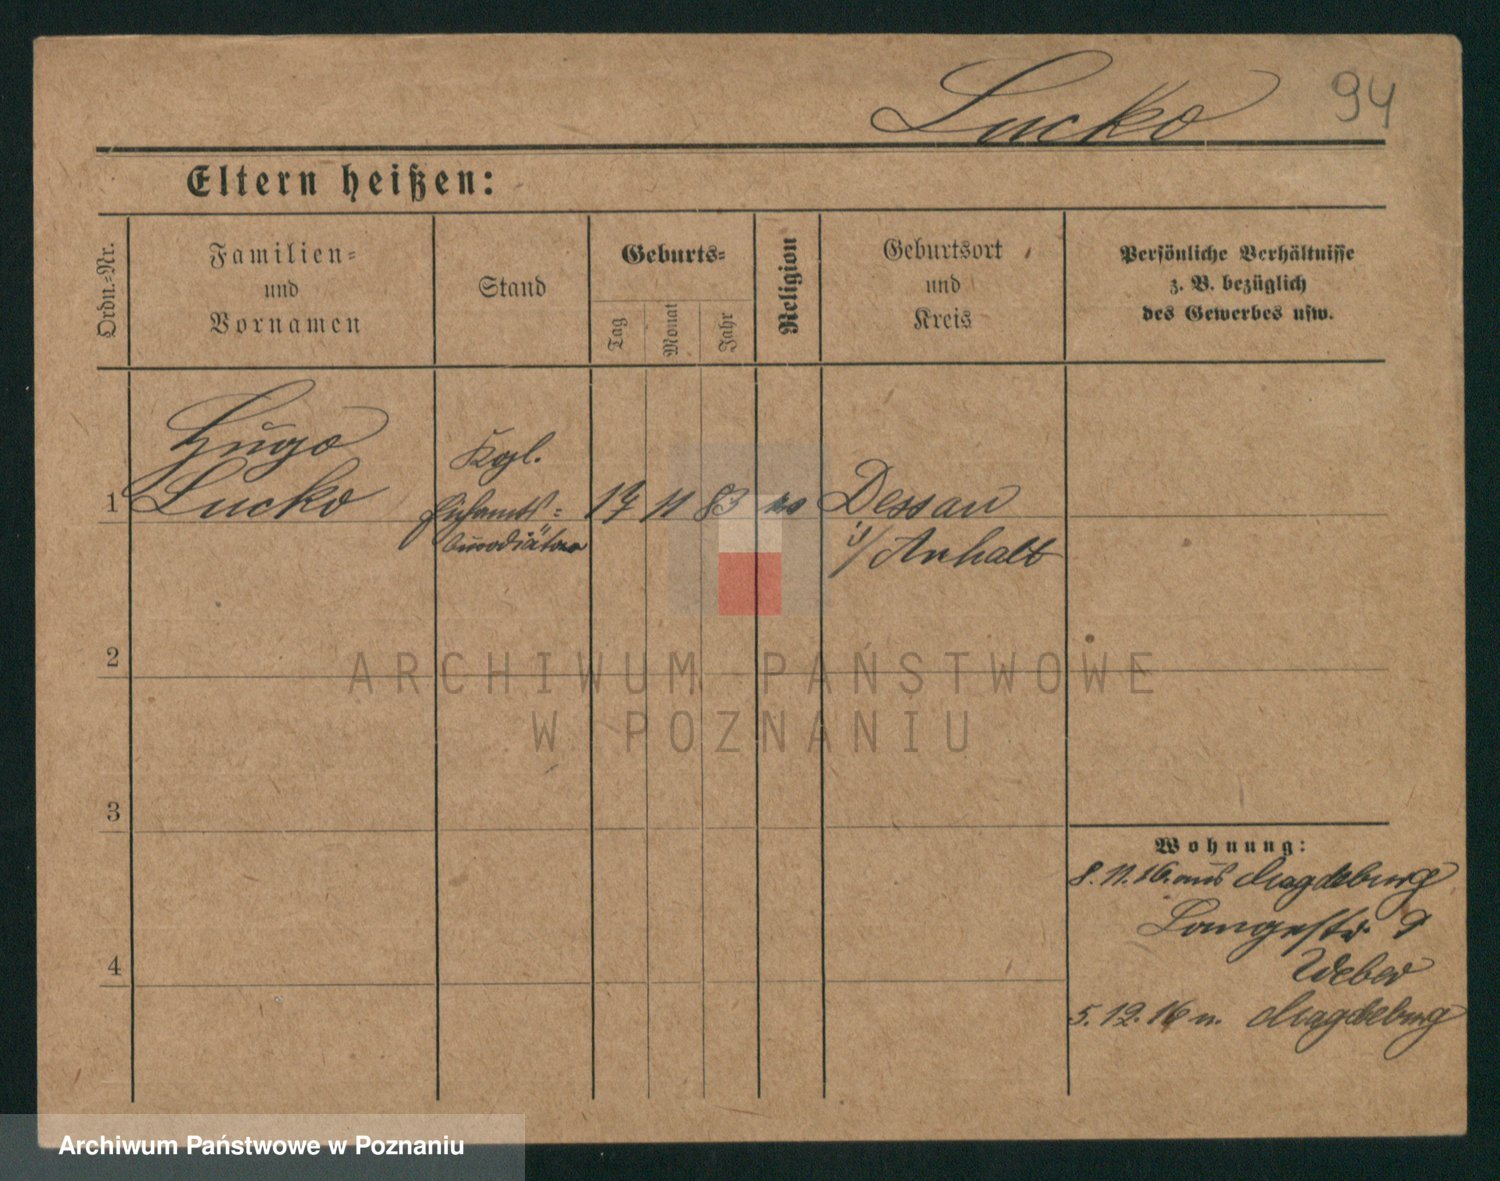 Lucko
94
Eltern heißen:
Ordn.-Nr.
Familien-
und
Vornamen
Stand
Geburts-
Tag
Monat
Jahr
Religion
Geburtsort
und
Kreis
Persönliche Verhältnisse
z. B. bezüglich
des Gewerbes usw.
1
Hugo
Lucko
Kgl.
17 11 83
Dessau
i/Anhalt
2
3
4
ARCHIWUM PAŃSTWOWE
W POZNANIU
Wohnung:
8. 11. 16. aus Magdeburg
Langestr. 9
Weber
5. 12. 16 n. Magdeburg
Archiwum Państwowe w Poznaniu